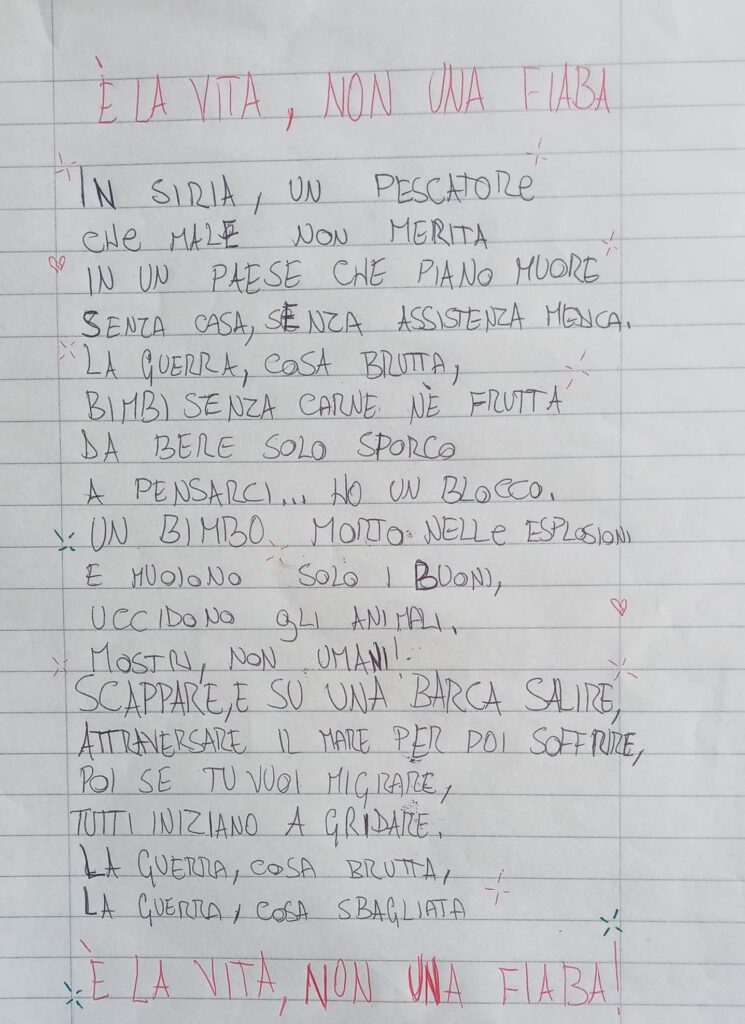 È LA VITA, NON UNA FIABA
IN SIRIA, UN PESCATORE
CHE MALE NON MERITA
IN UN PAESE CHE PIANO MUORE
SENZA CASA, SENZA ASSISTENZA MEDICA.
LA GUERRA, COSA BRUTTA,
BIMBI SENZA CARNE NÈ FRUTTA
DA BERE SOLO SPORCO
A PENSARCI... HO UN BLOCCO.
UN BIMBO MORTO NELLE ESPLOSIONI
E MUOIONO SOLO I BUONI,
UCCIDONO GLI ANIMALI.
MOSTRI, NON UMANI!
SCAPPARE, E SU UNA BARCA SALIRE,
ATTRAVERSARE IL MARE PER POI SOFFRIRE,
POI SE TU VUOI MIGRARE,
TUTTI INIZIANO A GRIDARE.
LA GUERRA, COSA BRUTTA,
LA GUERRA, COSA SBAGLIATA
È LA VITA, NON UNA FIABA!